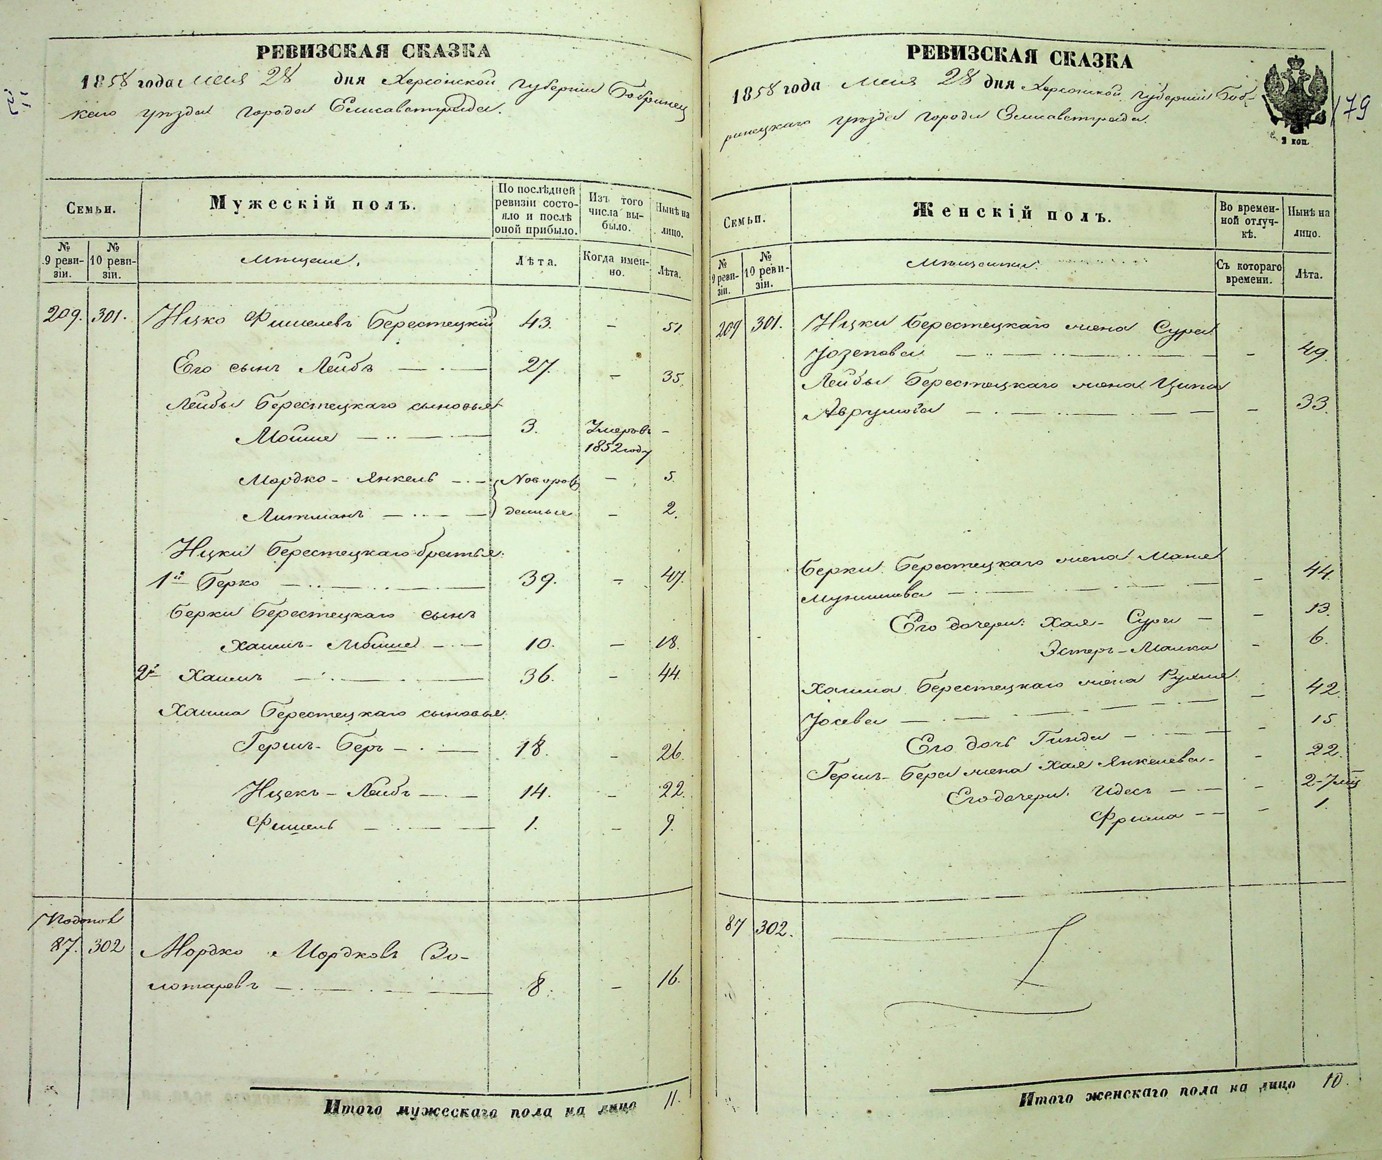 РЕВИЗСКАЯ СКАЗКА
1858 года мая 28 дня Херсонской губернии Бобринец
каго уезда города Елисаветграда.
Семьи.
Мужескій полъ.
По послѣдней ревизіи состояло и послѣ оной прибыло.
Изъ того числа выбыло.
Нынѣ на лицо.
№ 9 ревизіи.
№ 10 ревизіи.
Мѣщане.
Лѣта.
Когда именно.
Лѣта.
209. 301. Ицко Фишелевъ Берестецкій 43. – 51.
Его сынъ Лейбъ 27. – 35.
Лейбы Берестецкаго сыновья
Мойше 3. Умеръ въ 1852 году –
Мордко-Янкель Новорож – 5.
Литманъ денные – 2.
Ицки Берестецкаго братья:
1й Берко 39. – 47.
Берки Берестецкаго сынъ
Хаимъ-Мойше 10. – 18.
2й Хаимъ 36. – 44
Хаима Берестецкаго сыновья:
Гершъ-Беръ 18. – 26.
Ицекъ-Лейбъ 14. – 22.
Фишель 1. – 9.
87. 302 Мордко Мордковъ Зо-
лотаревъ 8. – 16.
Итого мужескаго пола на лицо 11.
РЕВИЗСКАЯ СКАЗКА
1858 года мая 28 дня Херсонской губерніи Боб-
ринецкаго уезда города Елисаветграда.
179
2 коп.
Семьи.
Женскій полъ.
Во временной отлучкѣ.
Нынѣ на лицо.
№ 9 ревизіи.
№ 10 ревизіи.
Мѣщанки.
Съ котораго времени.
Лѣта.
209 301. Ицки Берестецкаго жена Сура
Іозепова – 49.
Лейбы Берестецкаго жена Ципа
Аврумова – 33.
Берки Берестецкаго жена Маня
– 44.
Его дочери: Хая-Сура – 13.
Эстеръ-Малка – 6.
Хаима Берестецкаго жена Рухля
Іосева – 42.
Его дочь Гинда – 15.
Гершъ-Бера жена Хая Янкелева – 22.
Его дочери: Идесъ – 2-7 мц
Фрима – 1.
87 302.
Итого женскаго пола на лицо 10.